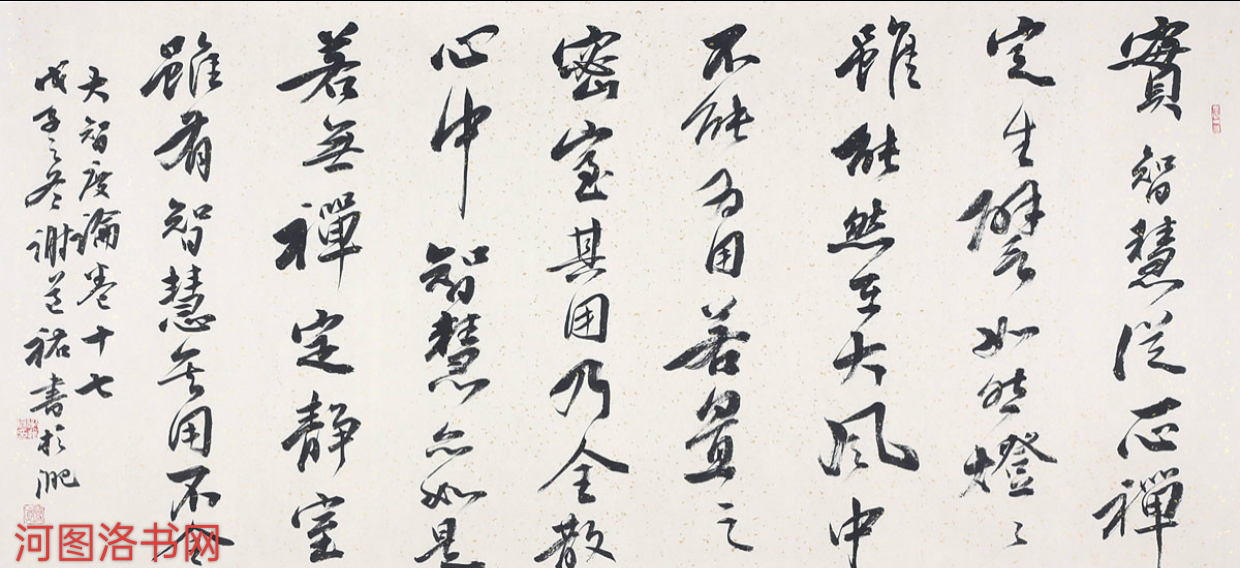 實智慧從一心禪
定生譬如然燈燈
雖能然在大風中
不能為用若置之
密室其用乃全散
心中智慧亦如是
若無禪定靜室
雖有智慧無用不全
大智度論卷十七
戊子之冬謝道祐書於肥
河图洛书网